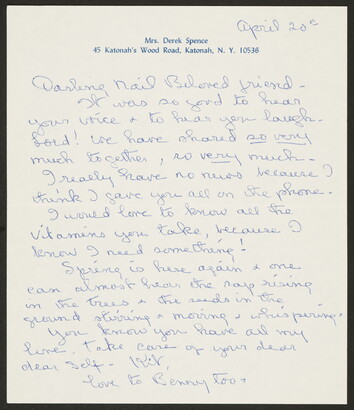 April 20th
Mrs. Derek Spence
45 Katonah's Wood Road, Katonah, N. Y. 10536
Darling, Beloved friend -
It was so good to hear
your voice & to hear you laugh.
Lord! We have shared so very
much together, so very much -
I really have no news because I
think I gave you all on the phone.
I would love to know all the
vitamins you take, because I
know I need something!
Spring is here again & one
can almost hear the sap rising
in the trees & the seeds in the
ground stirring & moving & whispering.
You know you have all my
love. Take care of your dear
dear self - Kit
Love to Benny too -